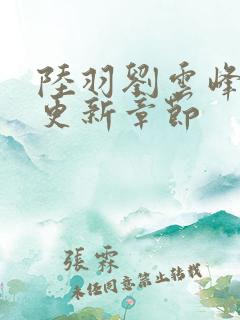 陸羽劉雲峰
更新章節
張霖
未经同意禁止转载